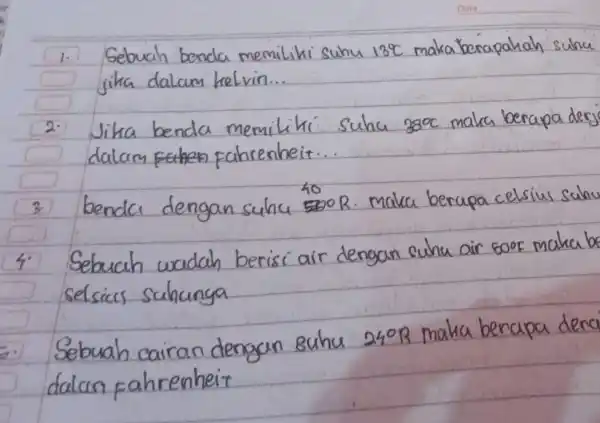 1. Sebuah benda memiliki suhu 13°C maka berapakah suhu
jika dalam kelvin...
2. Jika benda memiliki suhu 38°C maka berapa deraj
dalam Fahrenheit...
3. benda dengan suhu 40 °R. maka berapa celsius suhu
4. Sebuah wadah berisi air dengan suhu air 50°F maka be
selsius suhunya
5. Sebuah cairan dengan suhu 24°R maka berapa dera
dalan Fahrenheit